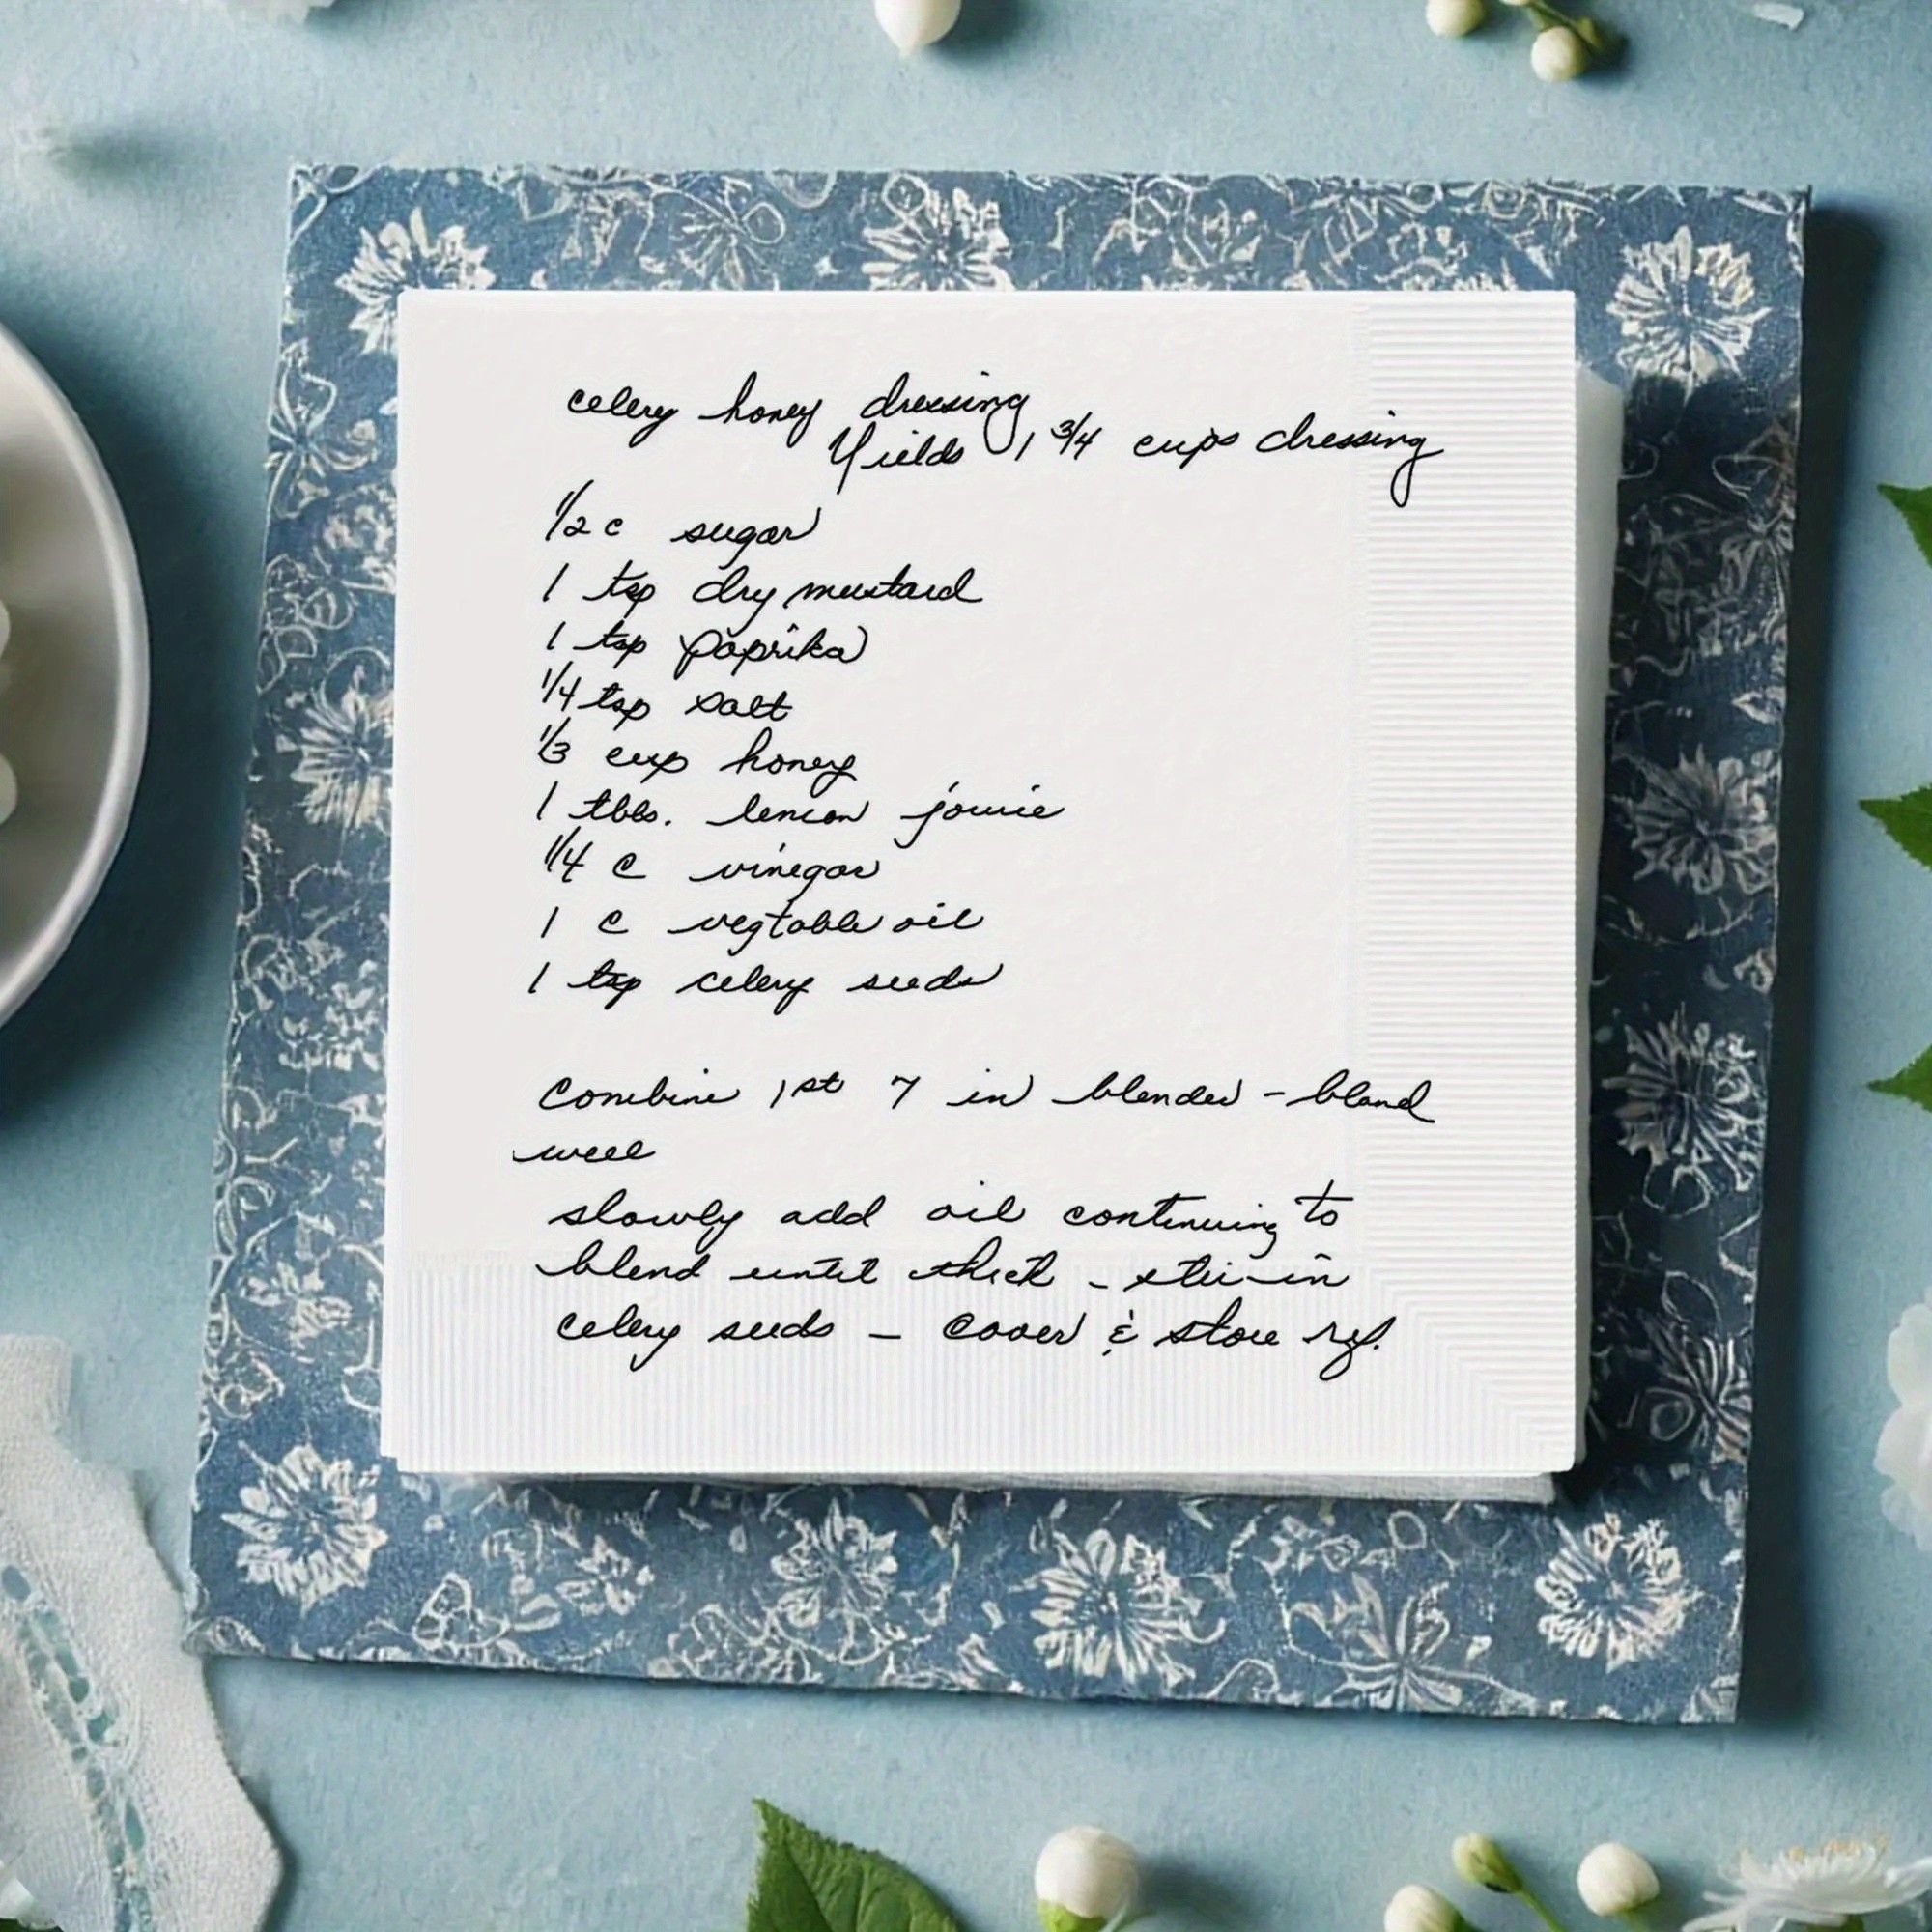 celery honey dressing
Yields 1 3/4 cups dressing
1/2 c sugar
1 tsp dry mustard
1 tsp paprika
1/4 tsp salt
1/3 cup honey
1 tbls. lemon jouie
1/4 c vinegar
1 c vegtable oil
1 tsp celery seeds
Combine 1st 7 in blender - bland
well
slowly add oil continuing to
blend until thick - stir in
celery seeds - cover & store ref.